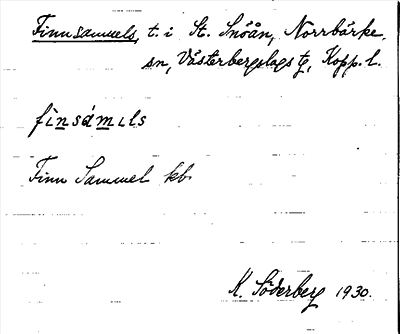 Finnsammels, t. i St. Snöån, Norrbärke
sn, Västerbergslags tg, Kopp. l.
fìnsámıls
Finn Sammel kb.
K. Söderberg 1930.